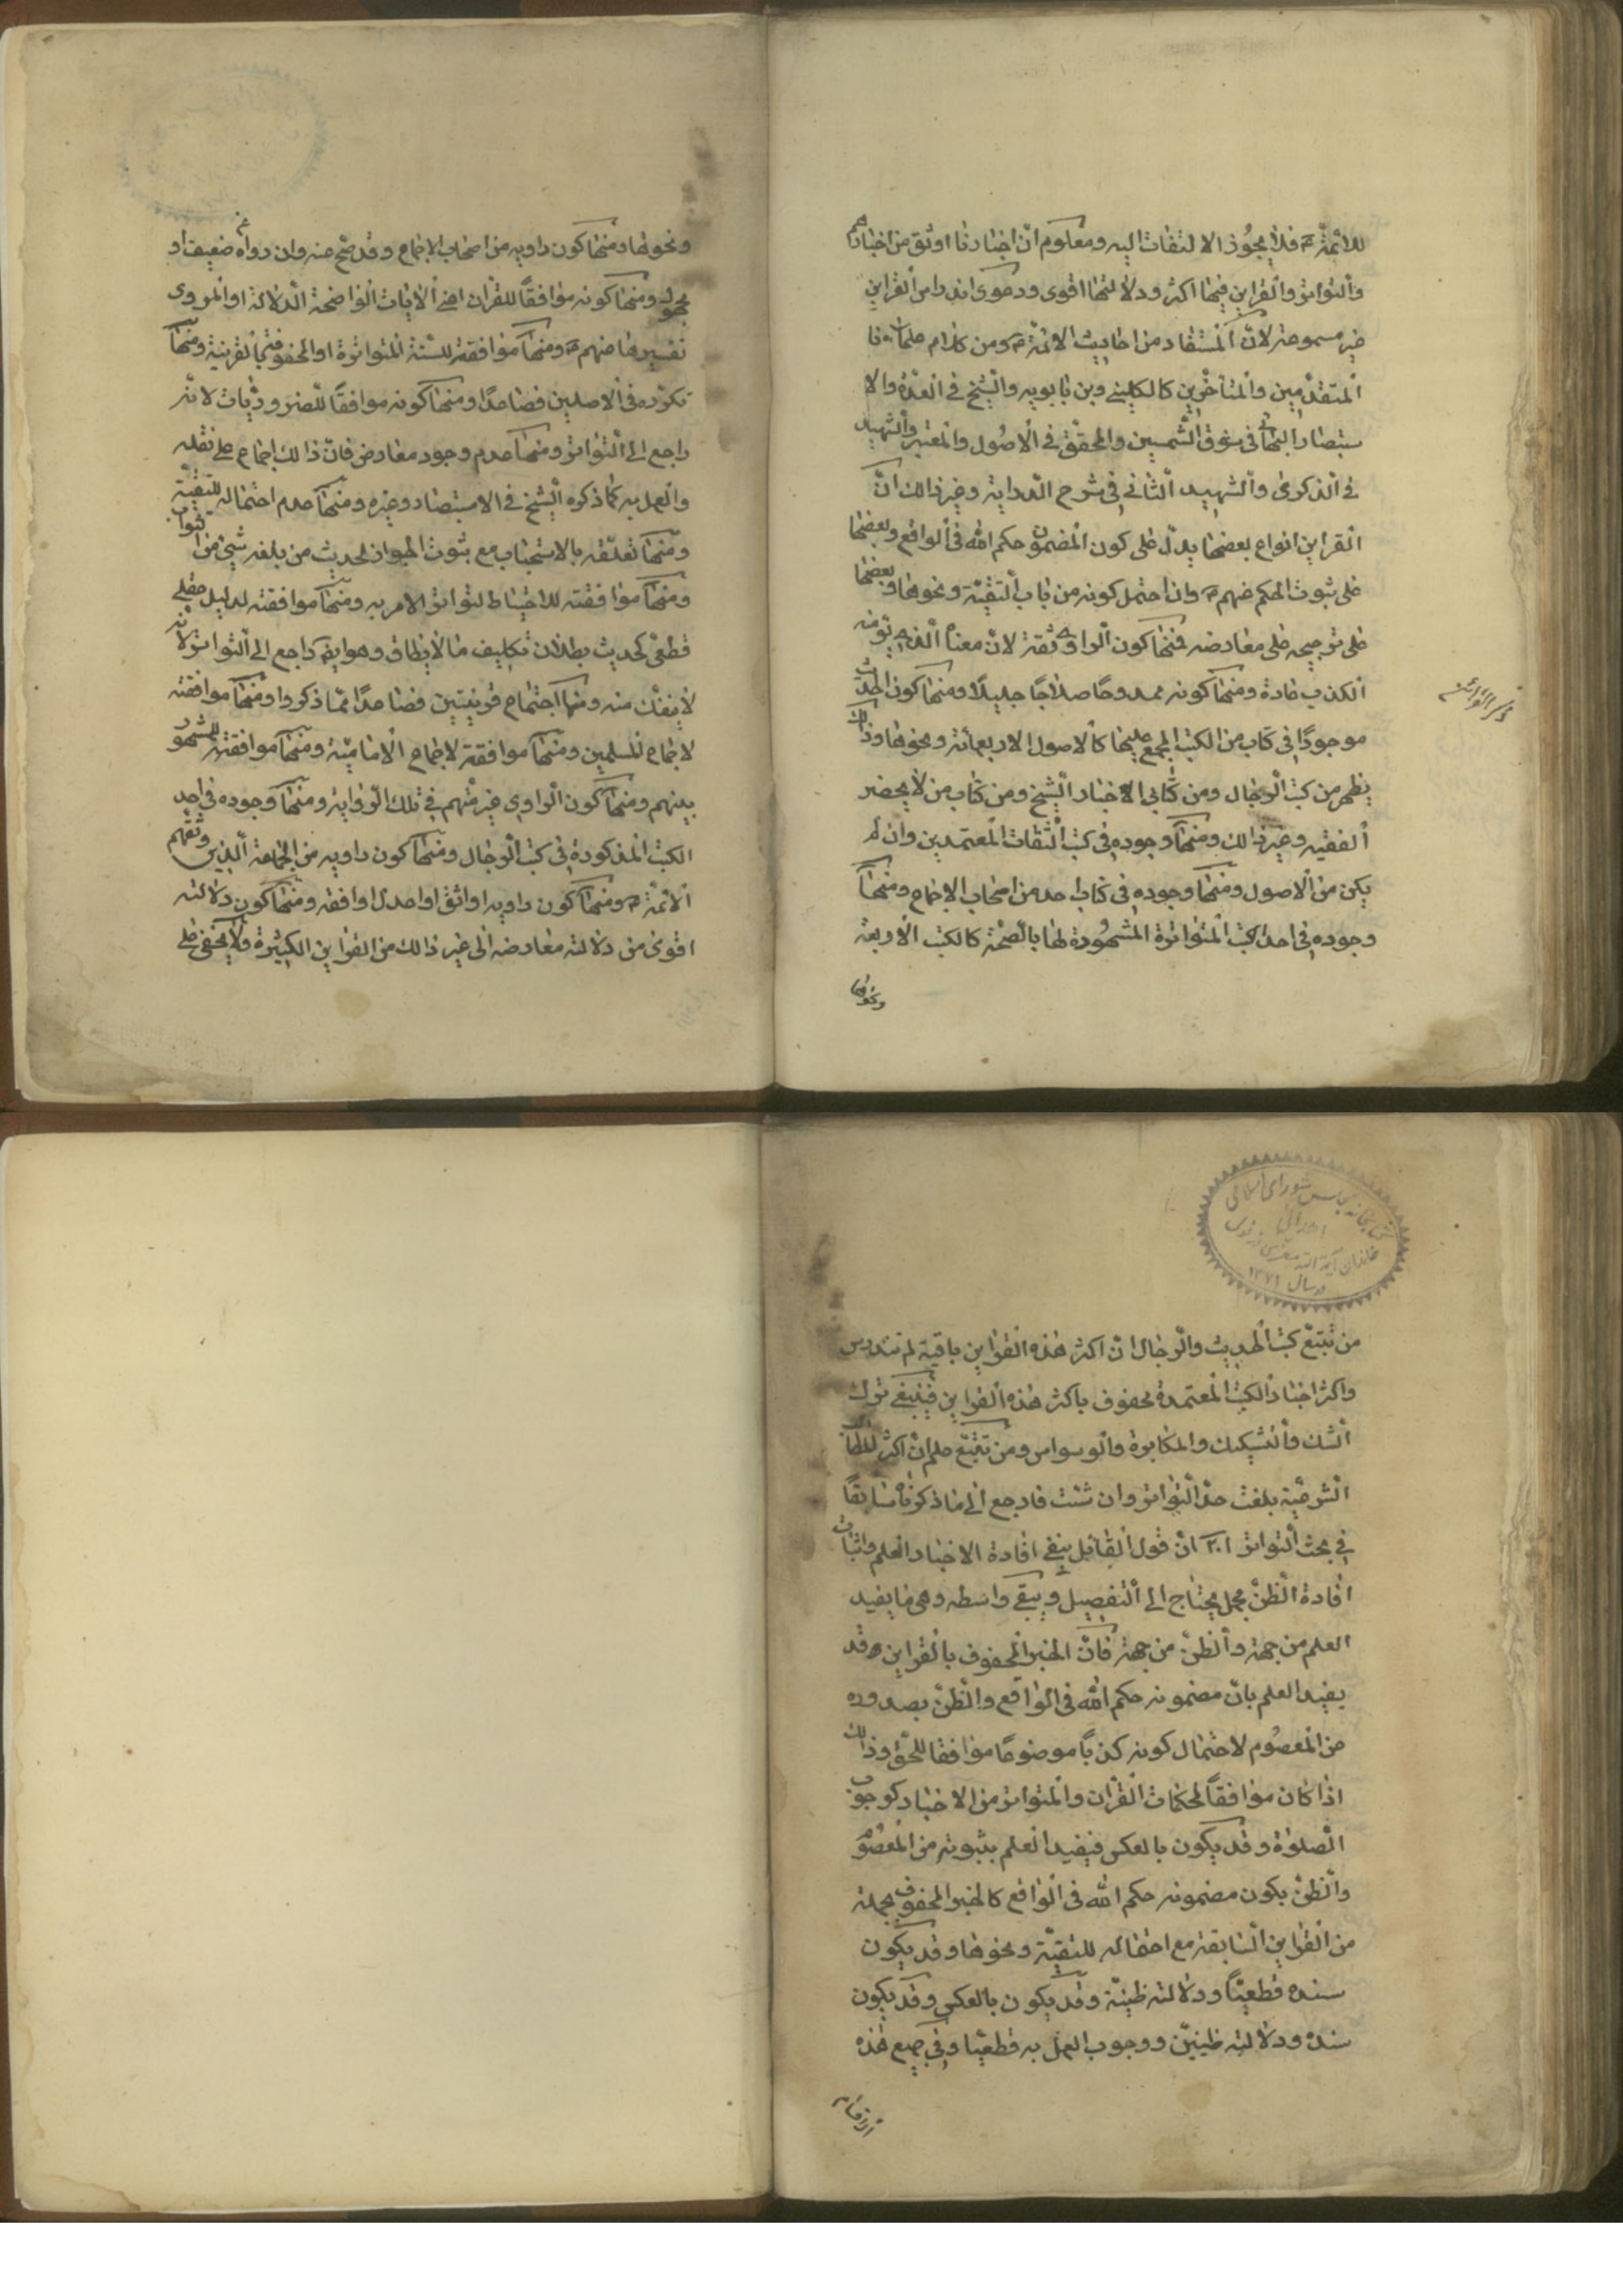 للائمّة ع فلا يجوّز الالتفات اليه ومعلوم انّ اخبارنا اوثق من اخبارهم
والتواتر والقراين فيها اكثر ودلالتها اقوى ودعوى اندراس القراين
غير مسموعة لانّ المستفاد من احاديث الائمّة ع ومن كلام علمائنا
المتقدّمين والمتأخّرين كالكليني وبن بابويه والشيخ في العدّة والا
ستبصار والبهائى في مشرق الشّمسين والمحقّق في الاصول والمعتبر والشهيد
في الذكرى والشهيد الثاني في شرح الدراية وغير ذالك انّ
القراين انواع بعضها يدلّ على كون المضمون حكم الله في الواقع وبعضها
على ثبوت الحكم عنهم ع وان احتمل كونه من باب التقيّة ونحوها وبعضها
على ترجيحه على معارضه فمنها كون الراوى ثقة لانّ معناه الّذى يؤمنه
الكذب عادة ومنها كونه ممدوحا صلاحًا جليلًا ومنها كون الحديث
موجودًا في كتاب من الكتب المجمع عليها كالاصول الاربعمائة ونحوها وذالك
يظهر من كتب الرجال ومن كتابى الاخبار الشيخ ومن كتاب من لا يحضر
الفقيه وغير ذالك ومنها وجوده في كتب الثقات المعتمدين وان لم
يكن من الاصول ومنها وجوده في كتاب احد من اصحاب الاجماع ومنها
وجوده في احد الكتب المتواترة المشهودة لها بالصّحّة كالكتب الاربعة
ونحوها
ذكر القرائن
ونحوها ومنها كون راويه من اصحاب الاجماع وقد صحّ عنه وان رواه عن ضعيف او
مجهول ومنها كونه موافقًا للقران اعنى الايات الواضحة الدّلالة او المروى
تفسيرها عنهم ع ومنها موافقة للسّنّة المتواترة او المحفوفة بالقرينة ومنها
تكرّره في الاصلين فصاعدًا ومنها كونه موافقًا للضروريّات لانّه
راجع الى التواتر ومنها عدم وجود معارض فانّ ذالك اجماع على نقله
والعمل به كما ذكره الشيخ في الاستبصار وغيره ومنها عدم احتماله للتقيّة
ومنها تعلّقه بالاستحباب مع ثبوت الجواز لحديث من بلغه شيئ من الثواب
ومنها موافقته للاحتياط لتواتر الامر به ومنها موافقته لدليل عقلى
قطعىّ كحديث بطلان تكليف ما لا يطاق وهو ايض راجع الى التواتر لانّه
لا ينفكّ منه ومنها اجتماع قرينتين فصاعدًا ممّا ذكروا ومنها موافقته
لاجماع المسلمين ومنها موافقة لاجماع الاماميّة ومنها موافقته للمشهور
بينهم ومنها كون الراوى غير متّهم في تلك الرّواية ومنها وجوده في احد
الكتب المذكورة في كتب الرجال ومنها كون راويه من الجماعة الّذين وثقهم
الائمّة ع ومنها كون راويه اواثق او اعدل او افقه ومنها كون دلالته
اقوى من دلالته معارضه الى غير ذالك من القراين الكثيرة ولا يخفى على
كتابخانه مجلس شوراى اسلامى
اهدائى
خاندان آية الله مقدس دزفولى
در سال ۱۳۷۱
من تتبّع كتب الحديث والرّجال انّ اكثر هذه القراين باقية لم تندرس
واكثر اخبار الكتب المعتمدة محفوف باكثر هذه القراين فينبغى ترك
الشك والتشكيك والمكابرة والوسواس ومن تتبّع علم انّ اكثر المطالب
الشرعيّة بلغت حدّ التواتر وان شئت فارجع الى ما ذكرناه سابقًا
في بحث التواتر انّ قول القائل ينفى افادة الاخبار العلم واثبات
افادة الظنّ مجمل يحتاج الى التفصيل ويبقى واسطه وهى ما يفيد
العلم من جهة والظنّ من جهة فانّ الخبر المحفوف بالقراين قد
يفيد العلم بانّ مضمونه حكم الله في الواقع والظنّ بصدوره
من المعصوم لاحتمال كونه كذبًا موضوعًا موافقا للحقّ وذالك
اذا كان موافقًا لمحكمات القرآن والمتواتر من الاخبار كوجوب
الصلوة وقد يكون بالعكس فيفيد العلم بثبوته من المعصوم
والظنّ بكون مضمونه حكم الله في الواقع كالخبر المحفوف بجملة
من القراين السّابقة مع احتماله للتقيّة ونحوها وقد يكون
سنده قطعيًّا ودلالته ظنيّة وقد يكون بالعكس وقد يكون
سنده ودلالته ظنيّين ووجوب العمل به قطعيّا وفي جميع هذه